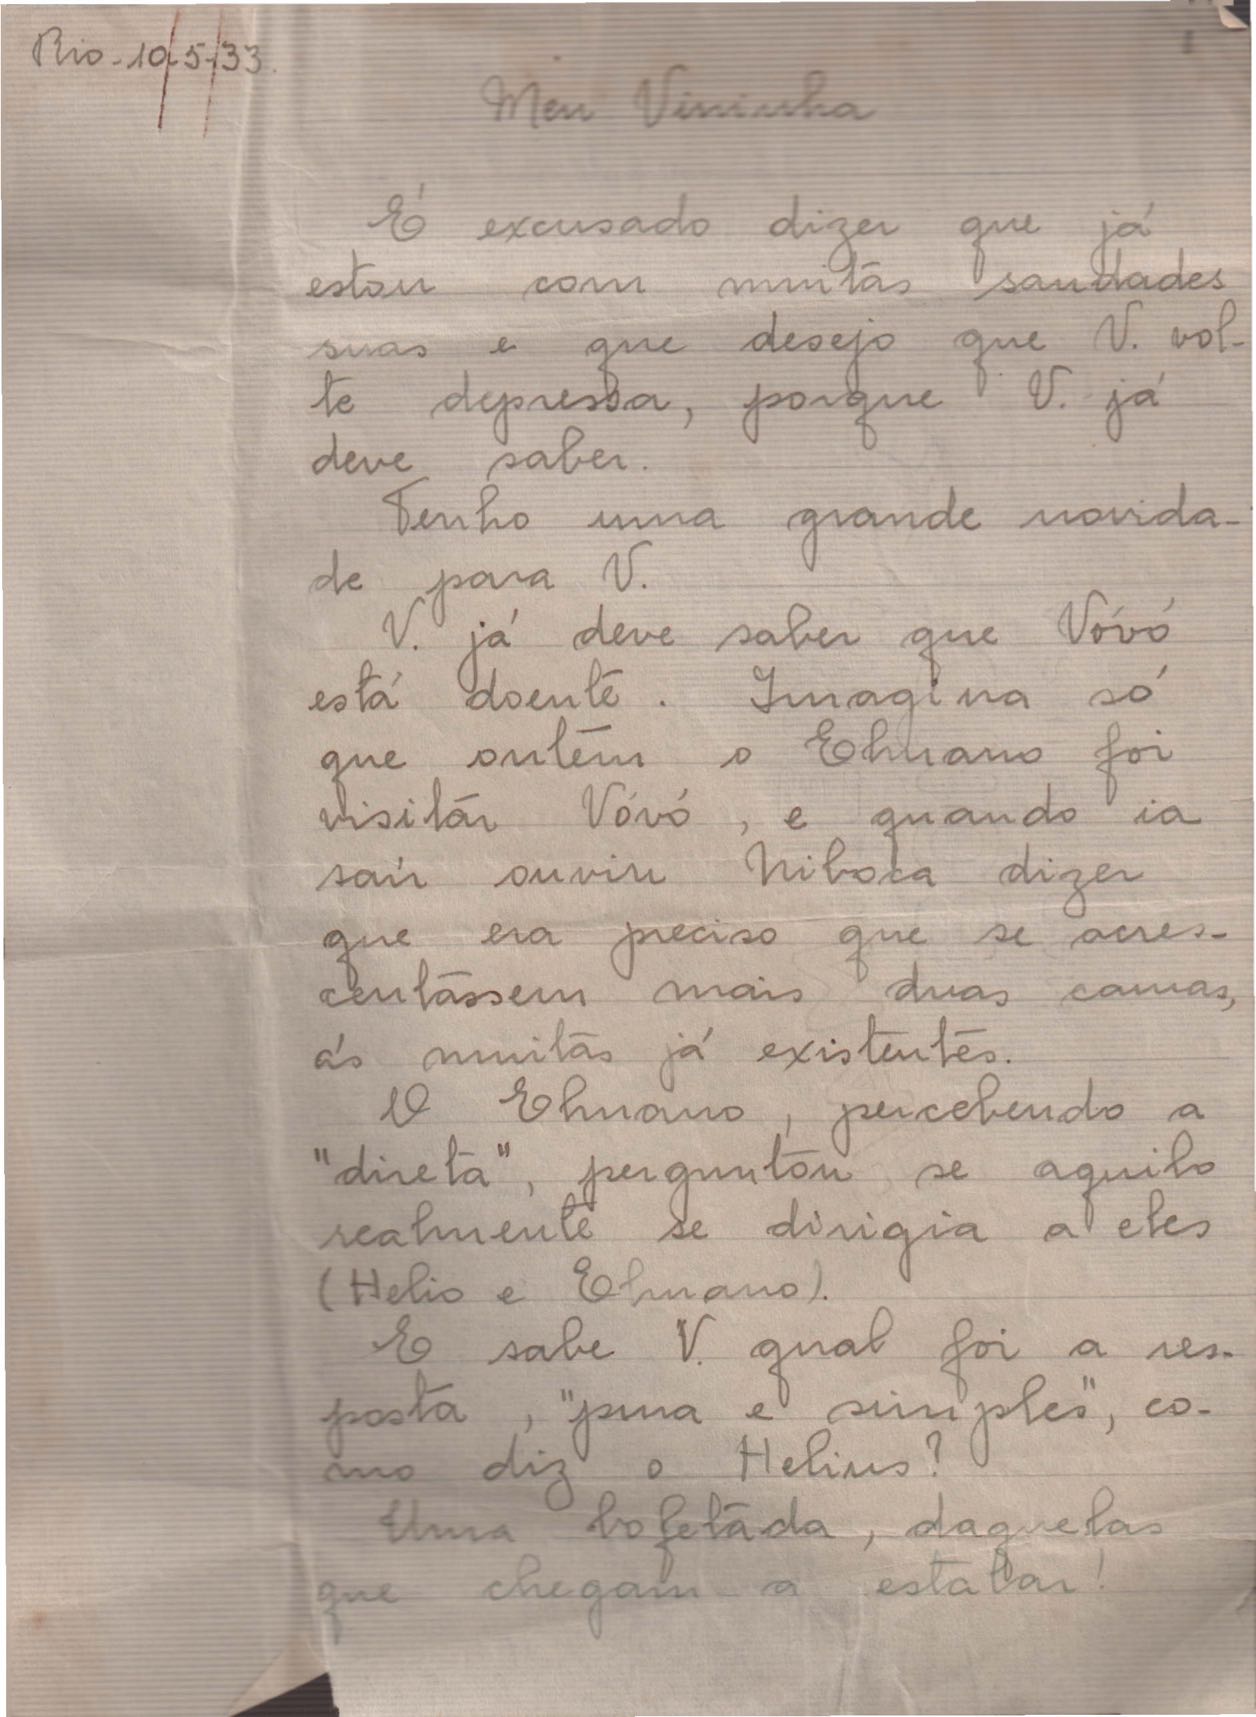 Rio-10-5-33.
Meu Vininha
É excusado dizer que já
estou com muitas saudades
suas e que desejo que V. vol-
te depressa, porque V. já
deve saber.
Tenho uma grande novida-
de para V.
V. já deve saber que Vóvó
está doente. Imagina só
que ontem o Elmano foi
visitar Vóvó, e quando ia
saír ouviu Niboca dizer
que era preciso que se acres-
centassem mais duas camas,
ás muitas já existentes.
O Elmano, percebendo a
"direta", perguntou se aquilo
realmente se dirigia a eles
(Helio e Elmano).
E sabe V. qual foi a res-
posta, "pura e simples", co-
mo diz o Helius?
Uma bofetada, daquelas
que chegam a estalar!